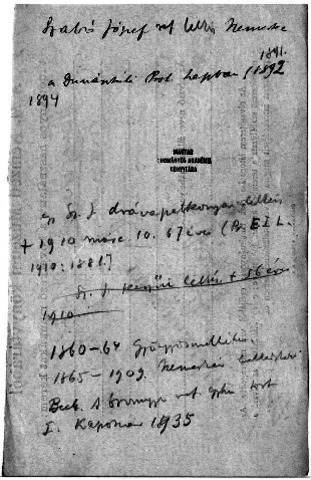 Szabó József ref lelkész Nemeske
1891.
a Dunántúli Prot Lapban (1892
1894
MAGYAR
TUDOMÁNYOS AKADÉMIA
KÖNYVTÁRA
Sz. J. drávapalkonyai lelkész
+ 1910 márc. 10. 67 éve (P. E I L.
1910: 188 l.)
Sz. J. lelkész + 56 éves
1910
1860–64 Gyöngyösmelléken.
1865–1909. Nemeskei
A ref. egyh.
I. Kaposvár 1935